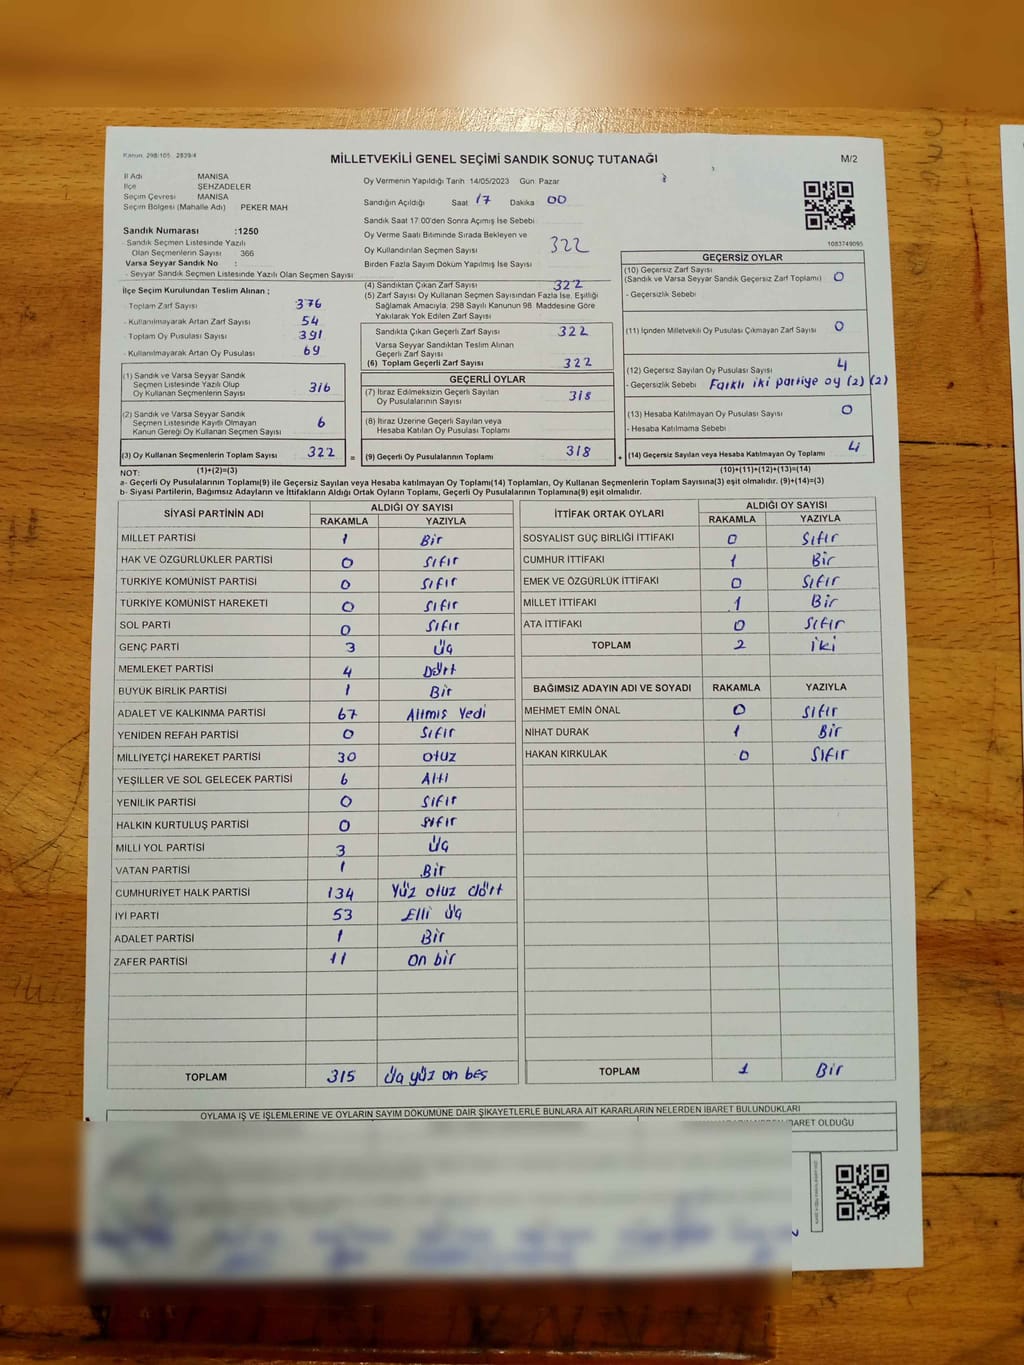 Kanun. 298/105 2839/4
MİLLETVEKİLİ GENEL SEÇİMİ SANDIK SONUÇ TUTANAĞI
M/2
İl Adı MANİSA
İlçe ŞEHZADELER
Seçim Çevresi MANİSA
Seçim Bölgesi (Mahalle Adı) PEKER MAH
Oy Vermenin Yapıldığı Tarih 14/05/2023 Gün Pazar
Sandığın Açıldığı Saat 17 Dakika 00
Sandık Saat 17:00'den Sonra Açımış İse Sebebi
Oy Verme Saati Bitiminde Sırada Bekleyen ve
Oy Kullandırılan Seçmen Sayısı 322
Birden Fazla Sayım Döküm Yapılmış İse Sayısı
1083749095
Sandık Numarası :1250
- Sandık Seçmen Listesinde Yazılı
Olan Seçmenlerin Sayısı 366
Varsa Seyyar Sandık No :
- Seyyar Sandık Seçmen Listesinde Yazılı Olan Seçmen Sayısı
İlçe Seçim Kurulundan Teslim Alınan ;
- Toplam Zarf Sayısı 376
- Kullanılmayarak Artan Zarf Sayısı 54
- Toplam Oy Pusulası Sayısı 391
- Kullanılmayarak Artan Oy Pusulası 69
(1) Sandık ve Varsa Seyyar Sandık
Seçmen Listesinde Yazılı Olup
Oy Kullanan Seçmenlerin Sayısı 316
(2) Sandık ve Varsa Seyyar Sandık
Seçmen Listesinde Kayıtlı Olmayan
Kanun Gereği Oy Kullanan Seçmen Sayısı 6
(3) Oy Kullanan Seçmenlerin Toplam Sayısı 322
=
(4) Sandıktan Çıkan Zarf Sayısı 322
(5) Zarf Sayısı Oy Kullanan Seçmen Sayısından Fazla İse, Eşitliği
Sağlamak Amacıyla, 298 Sayılı Kanunun 98. Maddesine Göre
Yakılarak Yok Edilen Zarf Sayısı
Sandıkta Çıkan Geçerli Zarf Sayısı 322
Varsa Seyyar Sandıktan Teslim Alınan
Geçerli Zarf Sayısı
(6) Toplam Geçerli Zarf Sayısı 322
GEÇERLİ OYLAR
(7) İtiraz Edilmeksizin Geçerli Sayılan
Oy Pusulalarının Sayısı 318
(8) İtiraz Üzerine Geçerli Sayılan veya
Hesaba Katılan Oy Pusulası Toplamı
(9) Geçerli Oy Pusulalarının Toplamı 318
+
GEÇERSİZ OYLAR
(10) Geçersiz Zarf Sayısı
(Sandık ve Varsa Seyyar Sandık Geçersiz Zarf Toplamı) 0
- Geçersizlik Sebebi
(11) İçinden Milletvekili Oy Pusulası Çıkmayan Zarf Sayısı 0
(12) Geçersiz Sayılan Oy Pusulası Sayısı 4
- Geçersizlik Sebebi Farklı iki partiye oy (2) (2)
(13) Hesaba Katılmayan Oy Pusulası Sayısı 0
- Hesaba Katılmama Sebebi
(14) Geçersiz Sayılan veya Hesaba Katılmayan Oy Toplamı 4
NOT: (1)+(2)=(3) (10)+(11)+(12)+(13)=(14)
a- Geçerli Oy Pusulalarının Toplamı(9) ile Geçersiz Sayılan veya Hesaba katılmayan Oy Toplamı(14) Toplamları, Oy Kullanan Seçmenlerin Toplam Sayısına(3) eşit olmalıdır. (9)+(14)=(3)
b- Siyasi Partilerin, Bağımsız Adayların ve İttifakların Aldığı Ortak Oyların Toplamı, Geçerli Oy Pusulalarının Toplamına(9) eşit olmalıdır.
SİYASİ PARTİNİN ADI ALDIĞI OY SAYISI
RAKAMLA YAZIYLA
MİLLET PARTİSİ 1 Bir
HAK VE ÖZGÜRLÜKLER PARTİSİ 0 Sıfır
TÜRKİYE KOMÜNİST PARTİSİ 0 Sıfır
TÜRKİYE KOMÜNİST HAREKETİ 0 Sıfır
SOL PARTİ 0 Sıfır
GENÇ PARTİ 3 Üç
MEMLEKET PARTİSİ 4 Dört
BÜYÜK BİRLİK PARTİSİ 1 Bir
ADALET VE KALKINMA PARTİSİ 67 Altmış Yedi
YENİDEN REFAH PARTİSİ 0 Sıfır
MİLLİYETÇİ HAREKET PARTİSİ 30 otuz
YEŞİLLER VE SOL GELECEK PARTİSİ 6 Altı
YENİLİK PARTİSİ 0 Sıfır
HALKIN KURTULUŞ PARTİSİ 0 Sıfır
MİLLİ YOL PARTİSİ 3 Üç
VATAN PARTİSİ 1 Bir
CUMHURİYET HALK PARTİSİ 134 Yüz otuz dört
İYİ PARTİ 53 Elli üç
ADALET PARTİSİ 1 Bir
ZAFER PARTİSİ 11 On bir
TOPLAM 315 Üç yüz on beş
İTTİFAK ORTAK OYLARI ALDIĞI OY SAYISI
RAKAMLA YAZIYLA
SOSYALİST GÜÇ BİRLİĞİ İTTİFAKI 0 Sıfır
CUMHUR İTTİFAKI 1 Bir
EMEK VE ÖZGÜRLÜK İTTİFAKI 0 Sıfır
MİLLET İTTİFAKI 1 Bir
ATA İTTİFAKI 0 Sıfır
TOPLAM 2 iki
BAĞIMSIZ ADAYIN ADI VE SOYADI RAKAMLA YAZIYLA
MEHMET EMİN ÖNAL 0 Sıfır
NİHAT DURAK 1 Bir
HAKAN KIRKULAK 0 Sıfır
TOPLAM 1 Bir
OYLAMA İŞ VE İŞLEMLERİNE VE OYLARIN SAYIM DÖKÜMÜNE DAİR ŞİKAYETLERLE BUNLARA AİT KARARLARIN NELERDEN İBARET BULUNDUKLARI
OLDUĞU